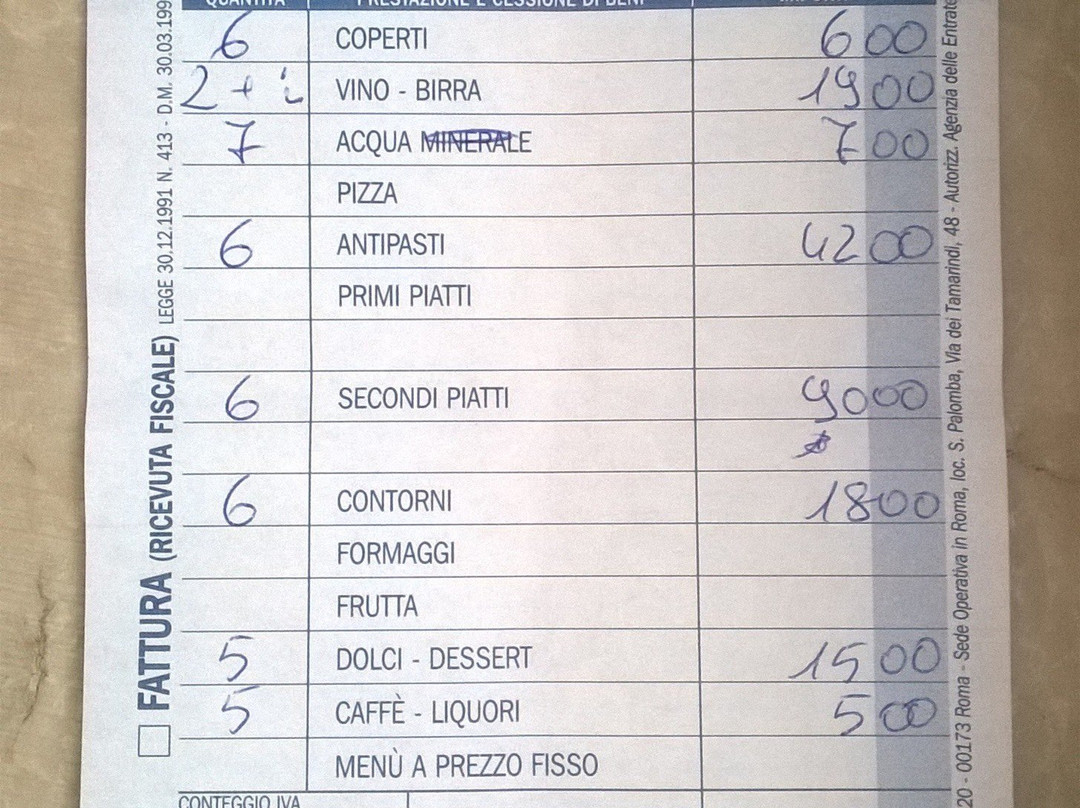 QUANTITÀ PRESTAZIONE E CESSIONE DI BENI
6 COPERTI 600
2 + VINO - BIRRA 1900
7 ACQUA MINERALE 700
PIZZA
6 ANTIPASTI 4200
PRIMI PIATTI
6 SECONDI PIATTI 9000
6 CONTORNI 1800
FORMAGGI
FRUTTA
5 DOLCI - DESSERT 1500
5 CAFFÈ - LIQUORI 500
MENÙ A PREZZO FISSO
CONTEGGIO IVA
FATTURA (RICEVUTA FISCALE) LEGGE 30.12.1991 N. 413 - D.M. 30.03.199
20 - 00173 Roma - Sede Operativa in Roma, loc. S. Palomba, Via dei Tamarindi, 48 - Autorizz. Agenzia delle Entrate